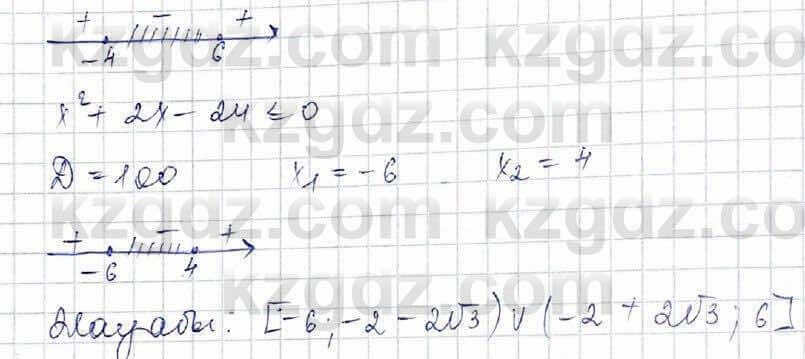 + − +
−4 6
x² + 2x − 24 ≤ 0
D = 100 x₁ = −6 x₂ = 4
+ − +
−6 4
Жауабы: [−6; −2 − 2√3) ∪ (−2 + 2√3; 6]
kzgdz.com kzgdz.com
kzgdz.com kzgdz.com
kzgdz.com kzgdz.com
kzgdz.com kzgdz.com